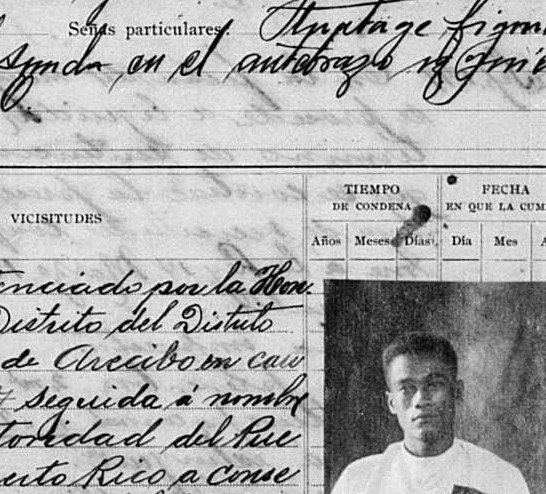 Señas particulares: Tatuage figura
en el antebrazo iz
VICISITUDES
TIEMPO
DE CONDENA
FECHA
EN QUE LA CUM
Años Meses Días. Día Mes A
enciado por la Hon.
Distrito del Distrito
de Arecibo en cau
seguida á nombre
toridad del Pue
erto Rico a conse